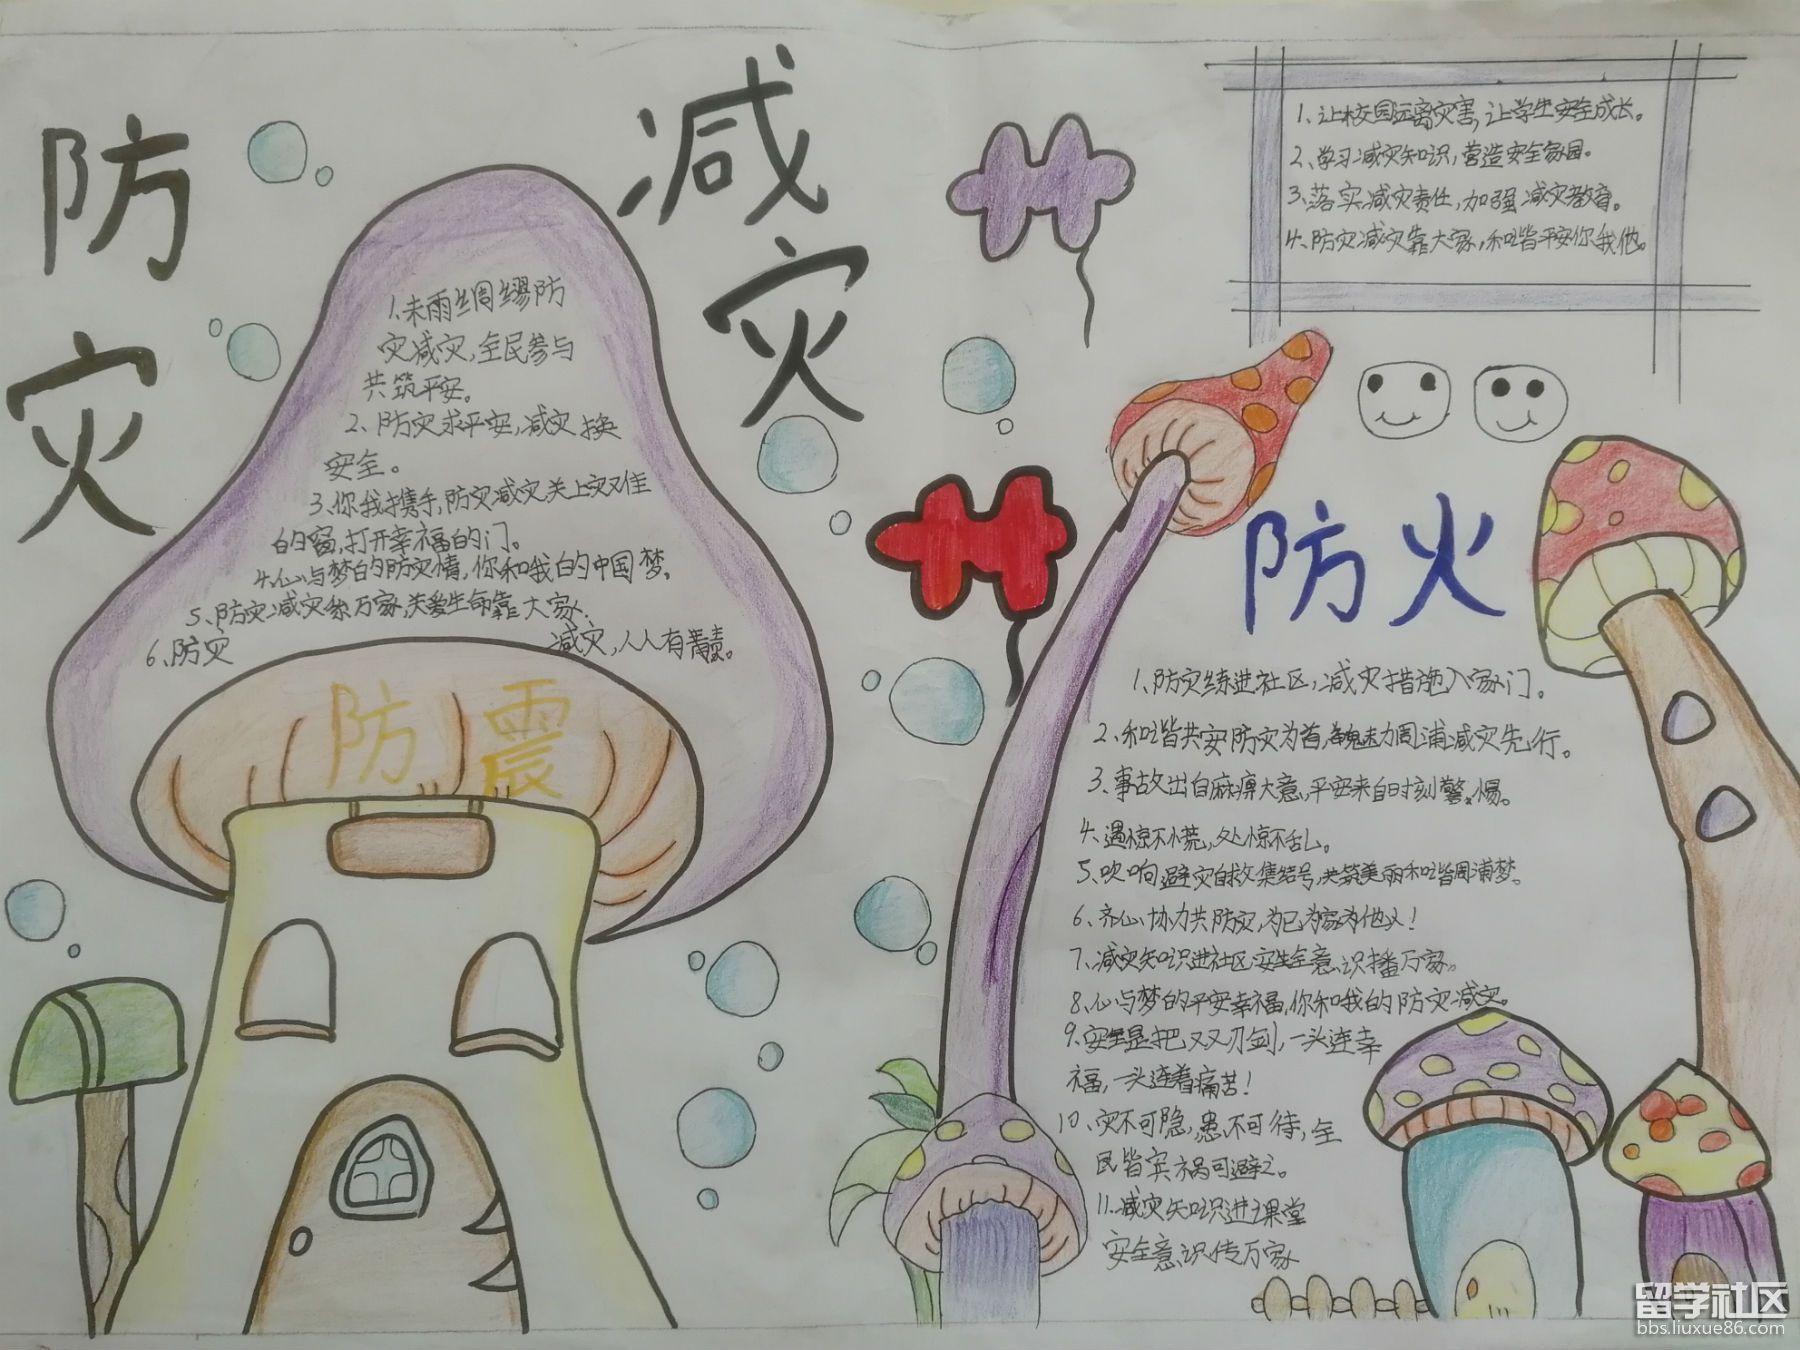 防灾
减灾
1、未雨绸缪防
灾减灾,全民参与
共筑平安。
2、防灾求平安,减灾换
安全。
3、你我携手,防灾减灾关上灾难
的窗,打开幸福的门。
4、心与梦的防灾情,你和我的中国梦。
5、防灾减灾系万家,关爱生命靠大家。
6、防灾 减灾,人人有责。
防震
1、让校园远离灾害,让学生安全成长。
2、学习减灾知识,营造安全家园。
3、落实减灾责任,加强减灾教育。
4、防灾减灾靠大家,和谐平安你我他。
防火
1、防灾练进社区,减灾措施入家门。
2、和谐共安防灾为首,魅力周浦减灾先行。
3、事故出自麻痹大意,平安来自时刻警惕。
4、遇惊不慌,处惊不乱。
5、吹响避灾自救集结号,共筑美丽和谐周浦梦。
6、齐心协力共防灾,为己为家为他人!
7、减灾知识进社区安全意识播万家。
8、心与梦的平安幸福,你和我的防灾减灾。
9、安全是把双又刃剑,一头连幸
福,一头连着痛苦!
10、灾不可隐,患不可待,全
民皆实祸可避之。
11、减灾知识进课堂
安全意识传万家
留学社区
bbs.liuxue86.com